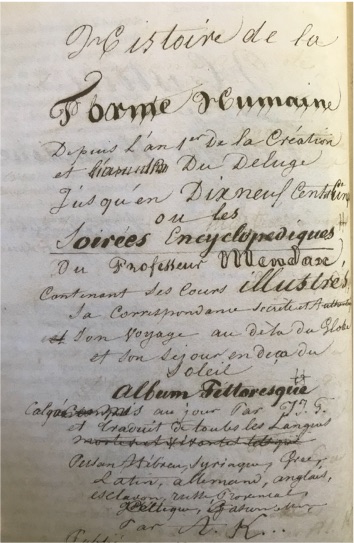 Histoire de la
Forme Humaine
Depuis L'an 1er De la Création
et Du Deluge
Jusqu'en Dixneuf Cent
ou les
Soirées Encyclopediques
Du Professeur Mendax
Contenant Ses Cours illustres
Sa Correspondance secrète et
Son Voyage au dela du Globe
et son Sejour en deça du
Soleil
Album Pittoresque
au jour Par T. F.
et traduit de toutes les Langues
mortes et vivantes
Persan Hébreu, Syriaque, Grec,
Latin, allemand, anglais,
esclavon, russe
Celtique,
Par A. K...